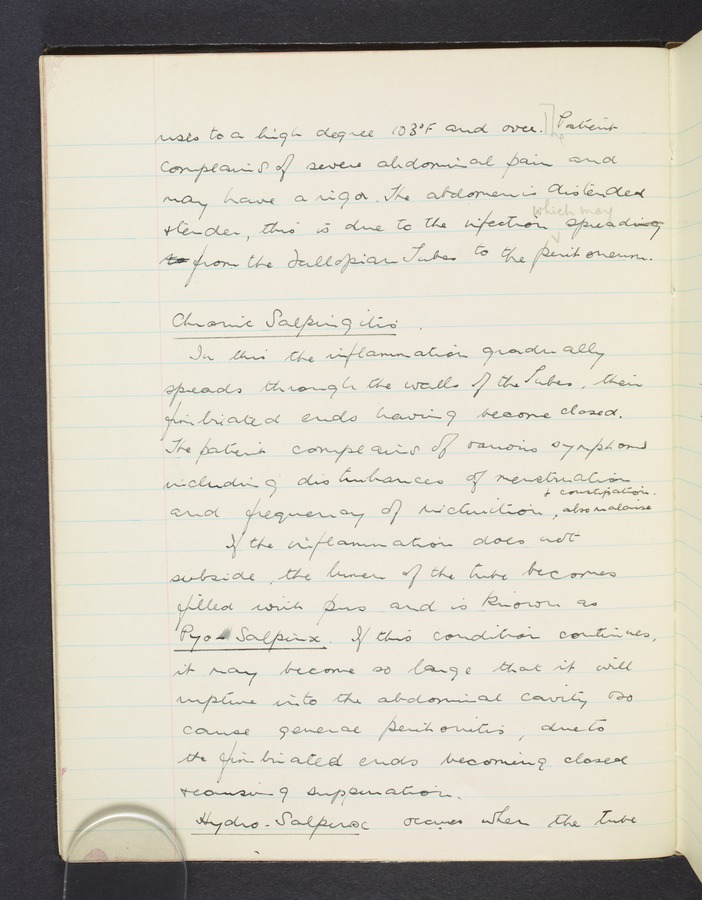 rises to a high degree 103°F and over. The Patient
complains of severe abdominal pain and
may have a rigor. The abdomen is distended
+ tender, this is due to the infection which may spreading
to from the Fallopian Tubes to the peritoneum.
Chronic Salpingitis.
In this the inflammation gradually
spreads through the walls of the Tubes, their
fimbriated ends having become closed.
The patient complains of various symptoms
including disturbances of menstruation
and frequency of micturition, also malaise + constipation.
If the inflammation does not
subside, the lumen of the tube becomes
filled with pus and is known as
Pyo-Salpinx. If this condition continues,
it may become so large that it will
rupture into the abdominal cavity & so
cause general peritonitis, due to
the fimbriated ends becoming closed
+ causing suppuration.
Hydro-Salpinx occurs when the tube